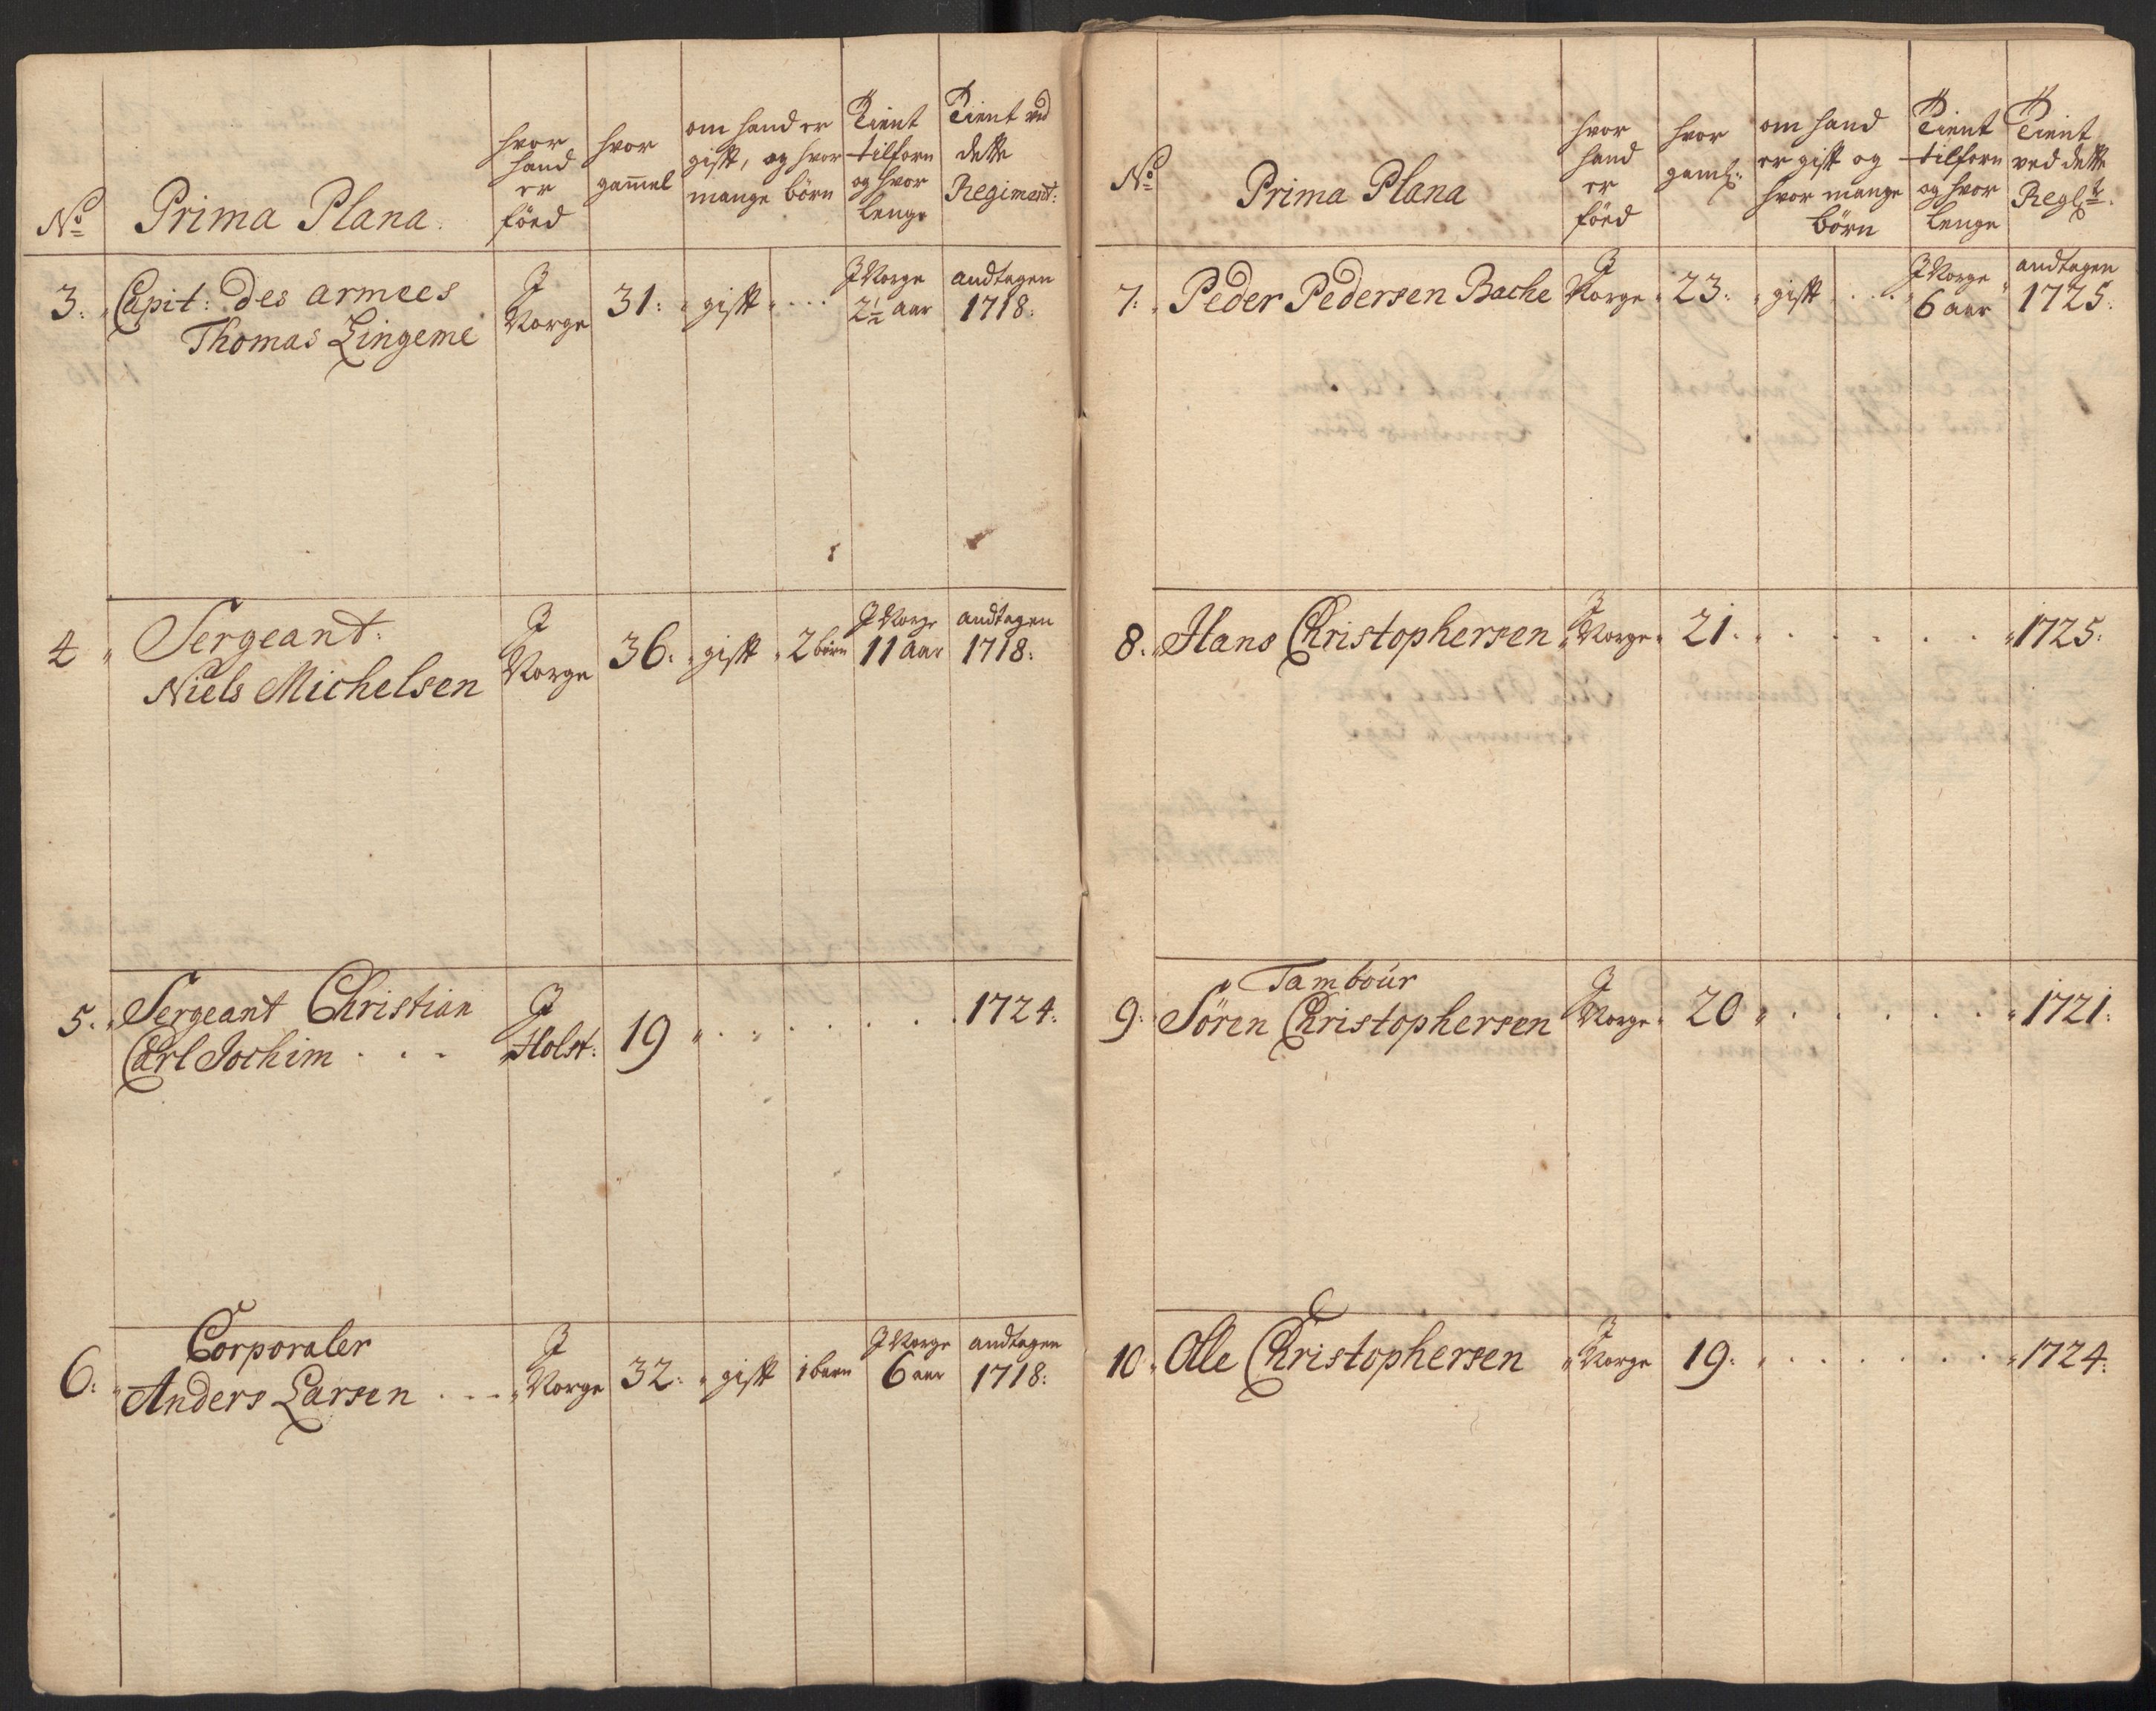 No Prima Plana.
hvor
hand
er
föed
hvor
gam̄el
om hand er
gift, og hvor
mange börn
Tient
tilforn
og hvor
lenge
Tient ved
dette
Regiment:
3. Capit: des armees
Thomas Lingeme
J
Norge
31: gift
J Norge
2½ aar
andtagen
1718:
4 Sergeant:
Niels Michelsen
J
Norge
36: gift 2 börn
J Norge
11 aar
andtagen
1718:
5. Sergeant Christian
Carl Jochim . . .
J
Holst:
19 1724:
6: Corporaler
Anders Larsen
J
Norge
32: gift 1 barn
J Norge
6 aar
andtagen
1718:
No Prima Plana
hvor
hand
er
föed
hvor
gaml:
om hand
er gift og
hvor mange
börn
Tient
tilforn
og hvor
lenge
Tient
ved dette
Regte.
7: Peder Pedersen Bache
J
Norge
23: gift
J Norge
6 aar
andtagen
1725:
8. Hans Christophersen
J
Norge
21. 1725:
9: Tambour
Sören Christophersen
J
Norge
20 1721:
10. Olle Christophersen
J
Norge
19: 1724: